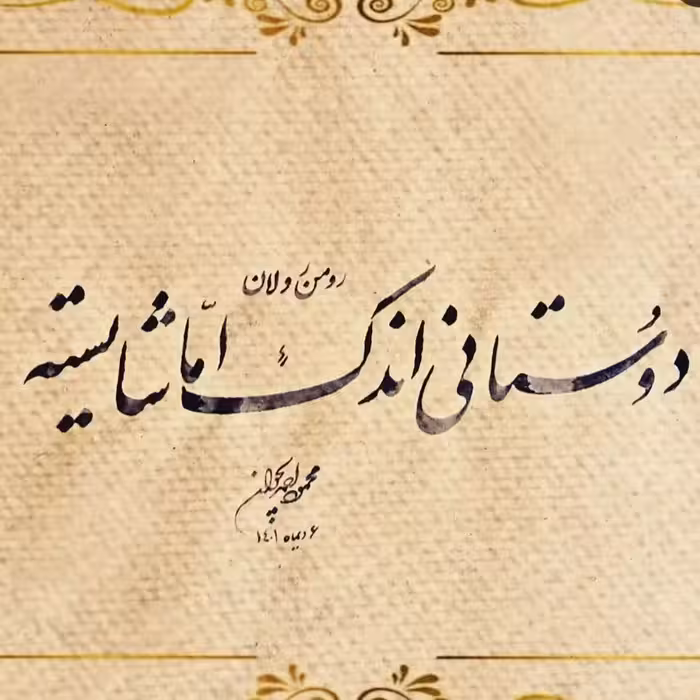 رومن رولان
دوستانی اندک امّا شایسته
محمود احمد
۶ دیماه ۱۴۰۱